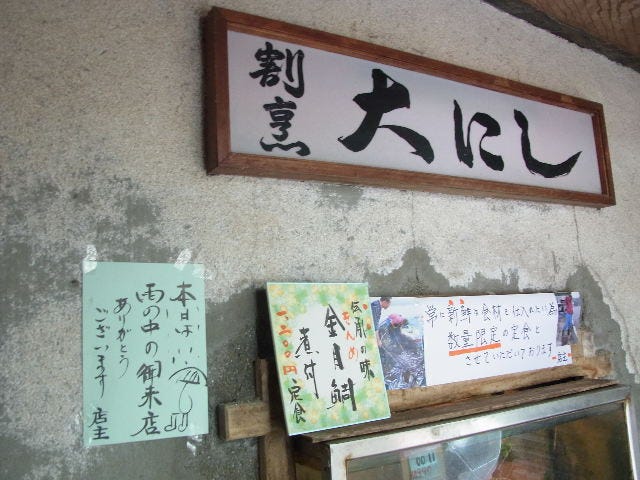 割烹 大にし
本日は
雨の中の御来店
ありがとう
ございます 店主
の味
きんめ
金目鯛
煮付
一二〇〇円定食
常に新鮮な食材を仕入れたい為
数量限定の定食と
させていただいております
店主